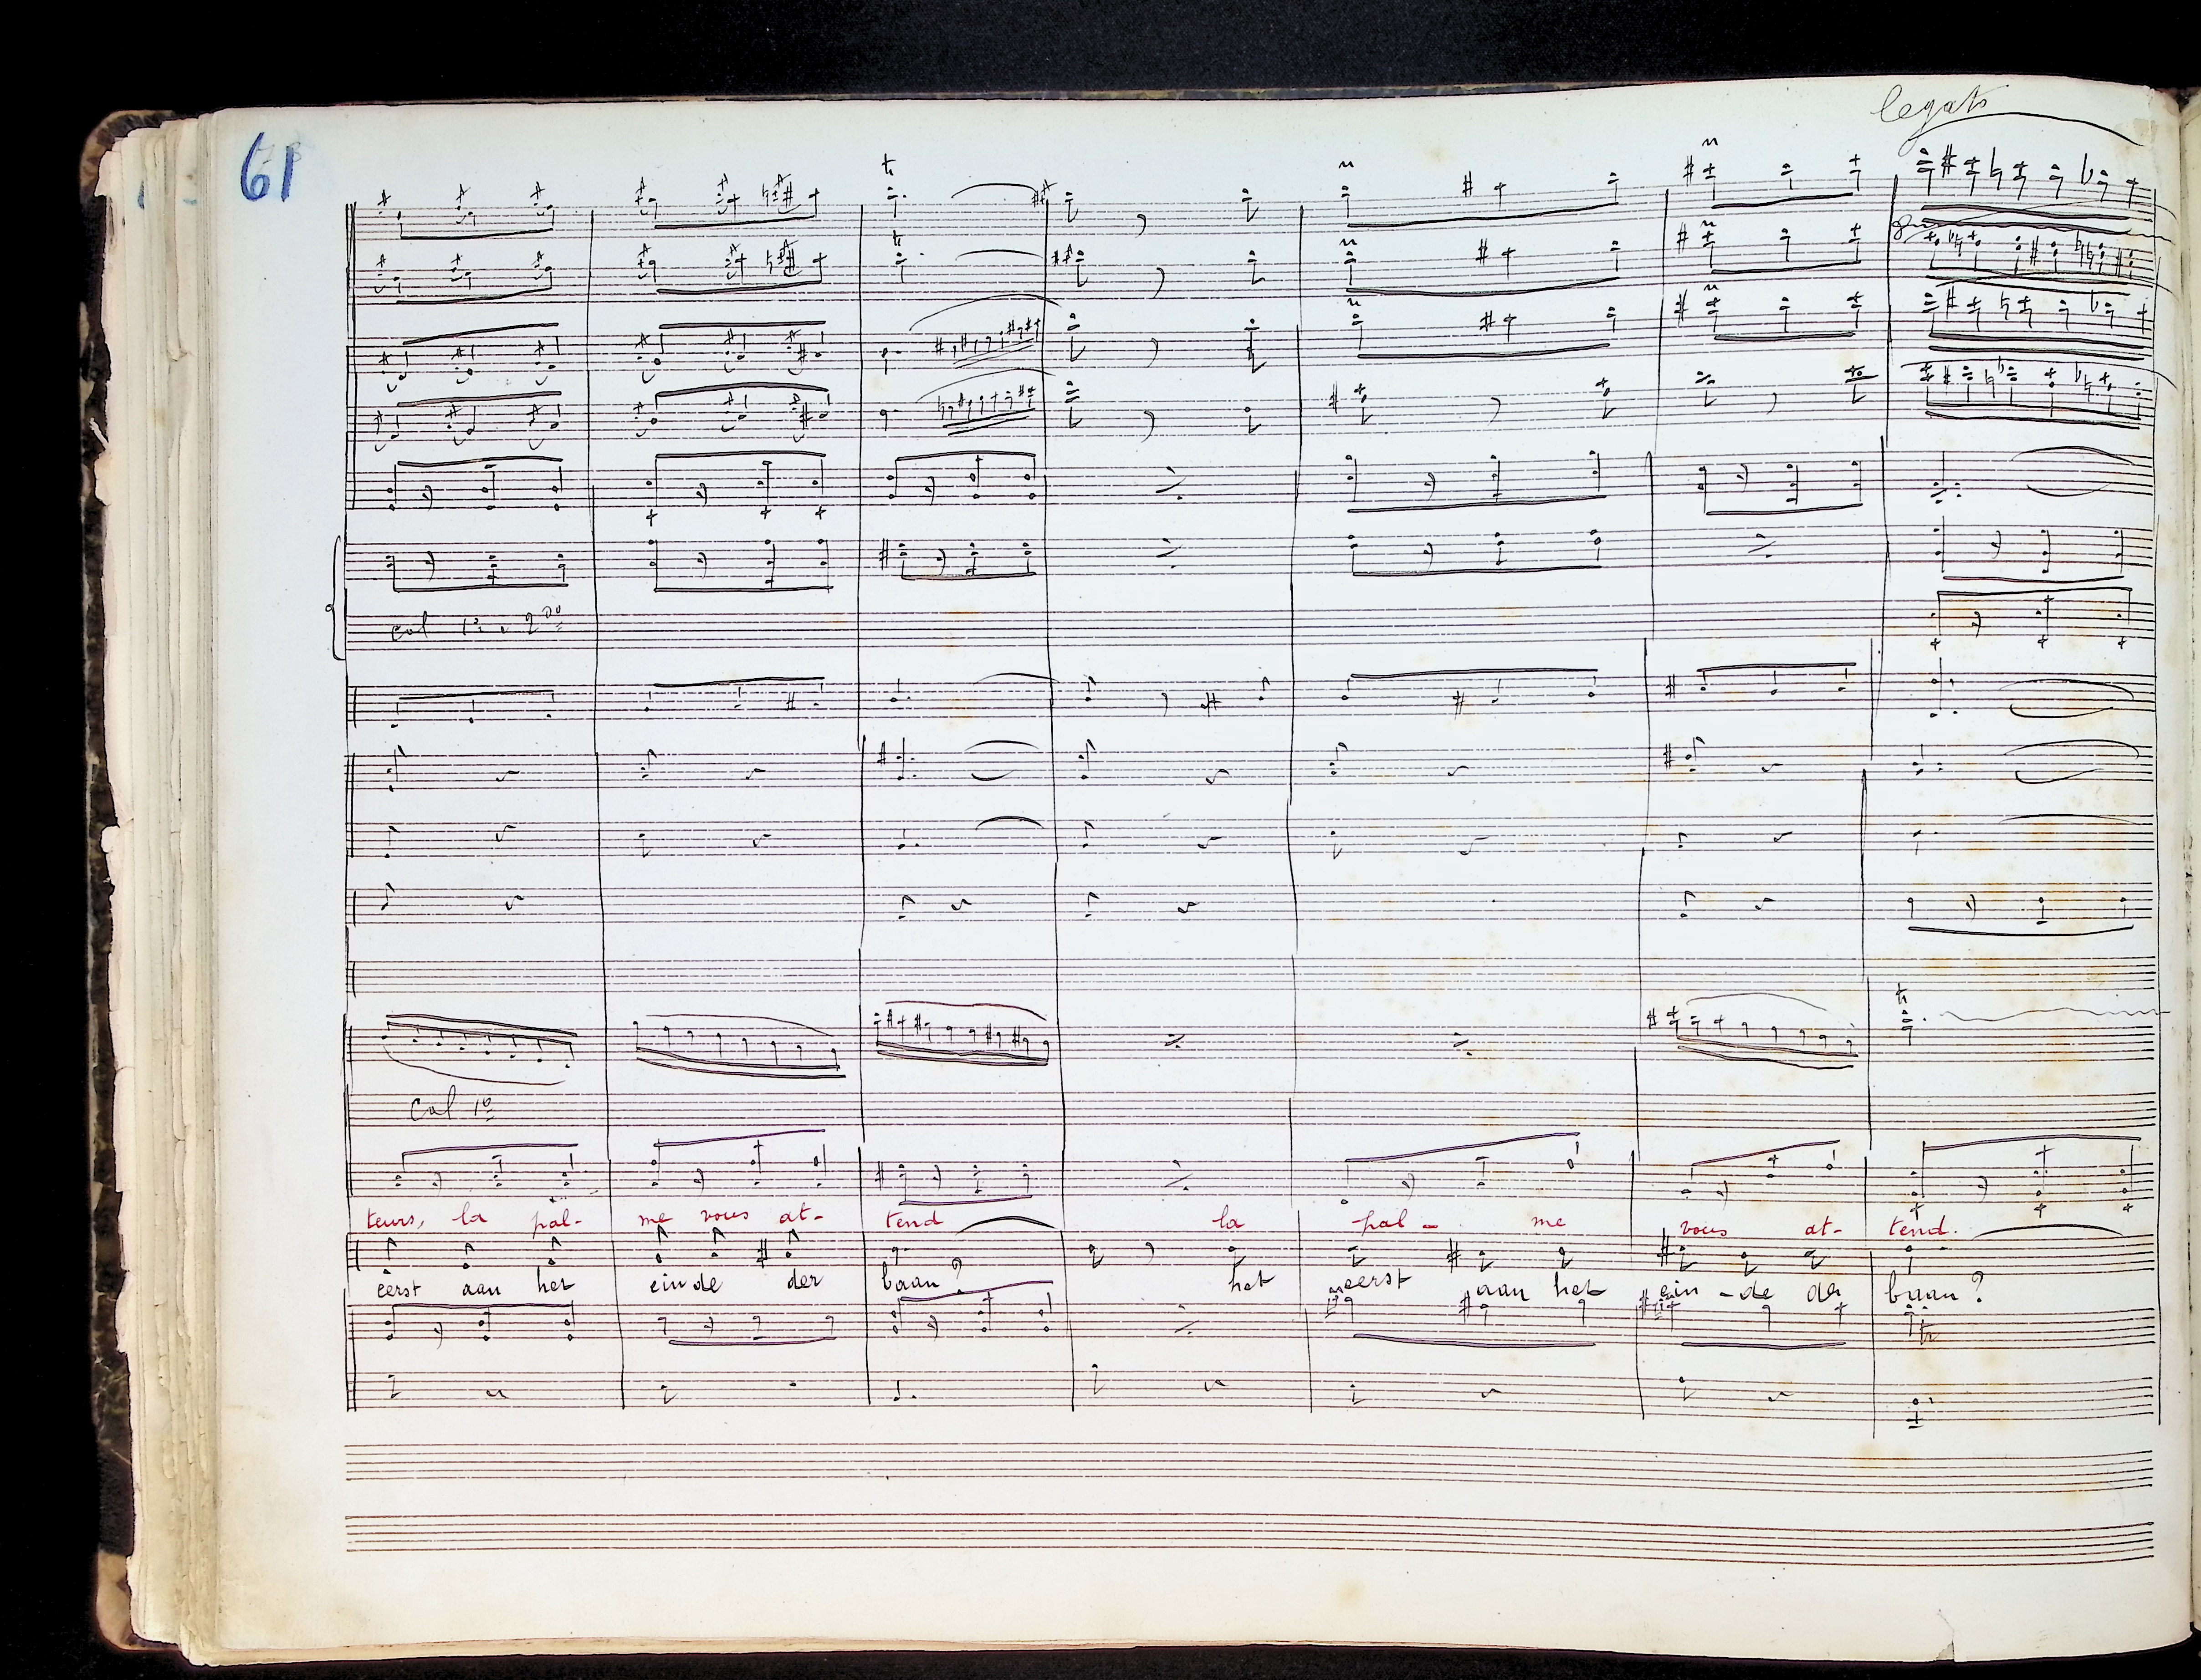 legato
61
8va
col 1º e 2do
Col 1º
teurs, la pal- me vous at- tend la pal - me vous at- tend.
eerst aan het einde der baan? het eerst aan het ein - de der baan?